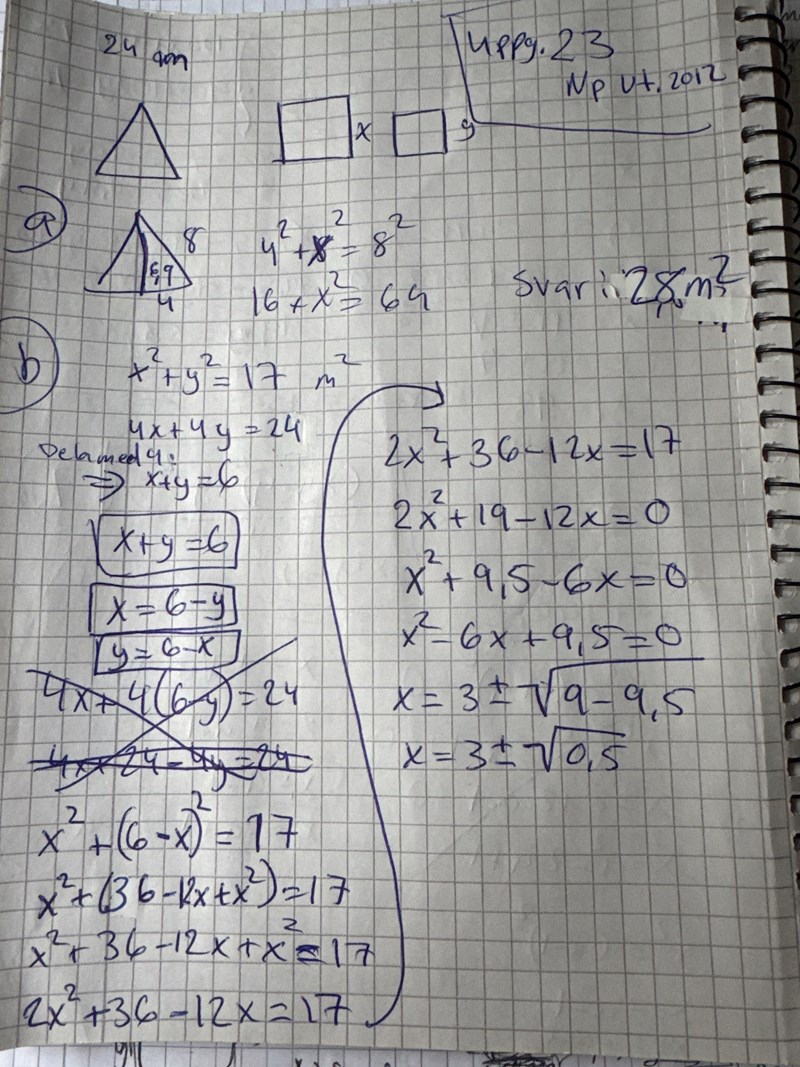 24 cm
Uppg. 23
Np vt. 2012
x
y
a)
8
6,9
4
4² + x² = 8²
16 + x² = 64
Svar: 28 m²
b)
x² + y² = 17 m²
4x + 4y = 24
Dela med 4:
⇒ x+y = 6
x+y = 6
x = 6-y
y = 6-x
4x + 4(6-y) = 24
4x + 24 - 4y = 24
x² + (6-x)² = 17
x² + (36-12x+x²) = 17
x² + 36 - 12x + x² = 17
2x² + 36 - 12x = 17
2x² + 36 - 12x = 17
2x² + 19 - 12x = 0
x² + 9,5 - 6x = 0
x² - 6x + 9,5 = 0
x = 3 ± √9 - 9,5
x = 3 ± √0,5